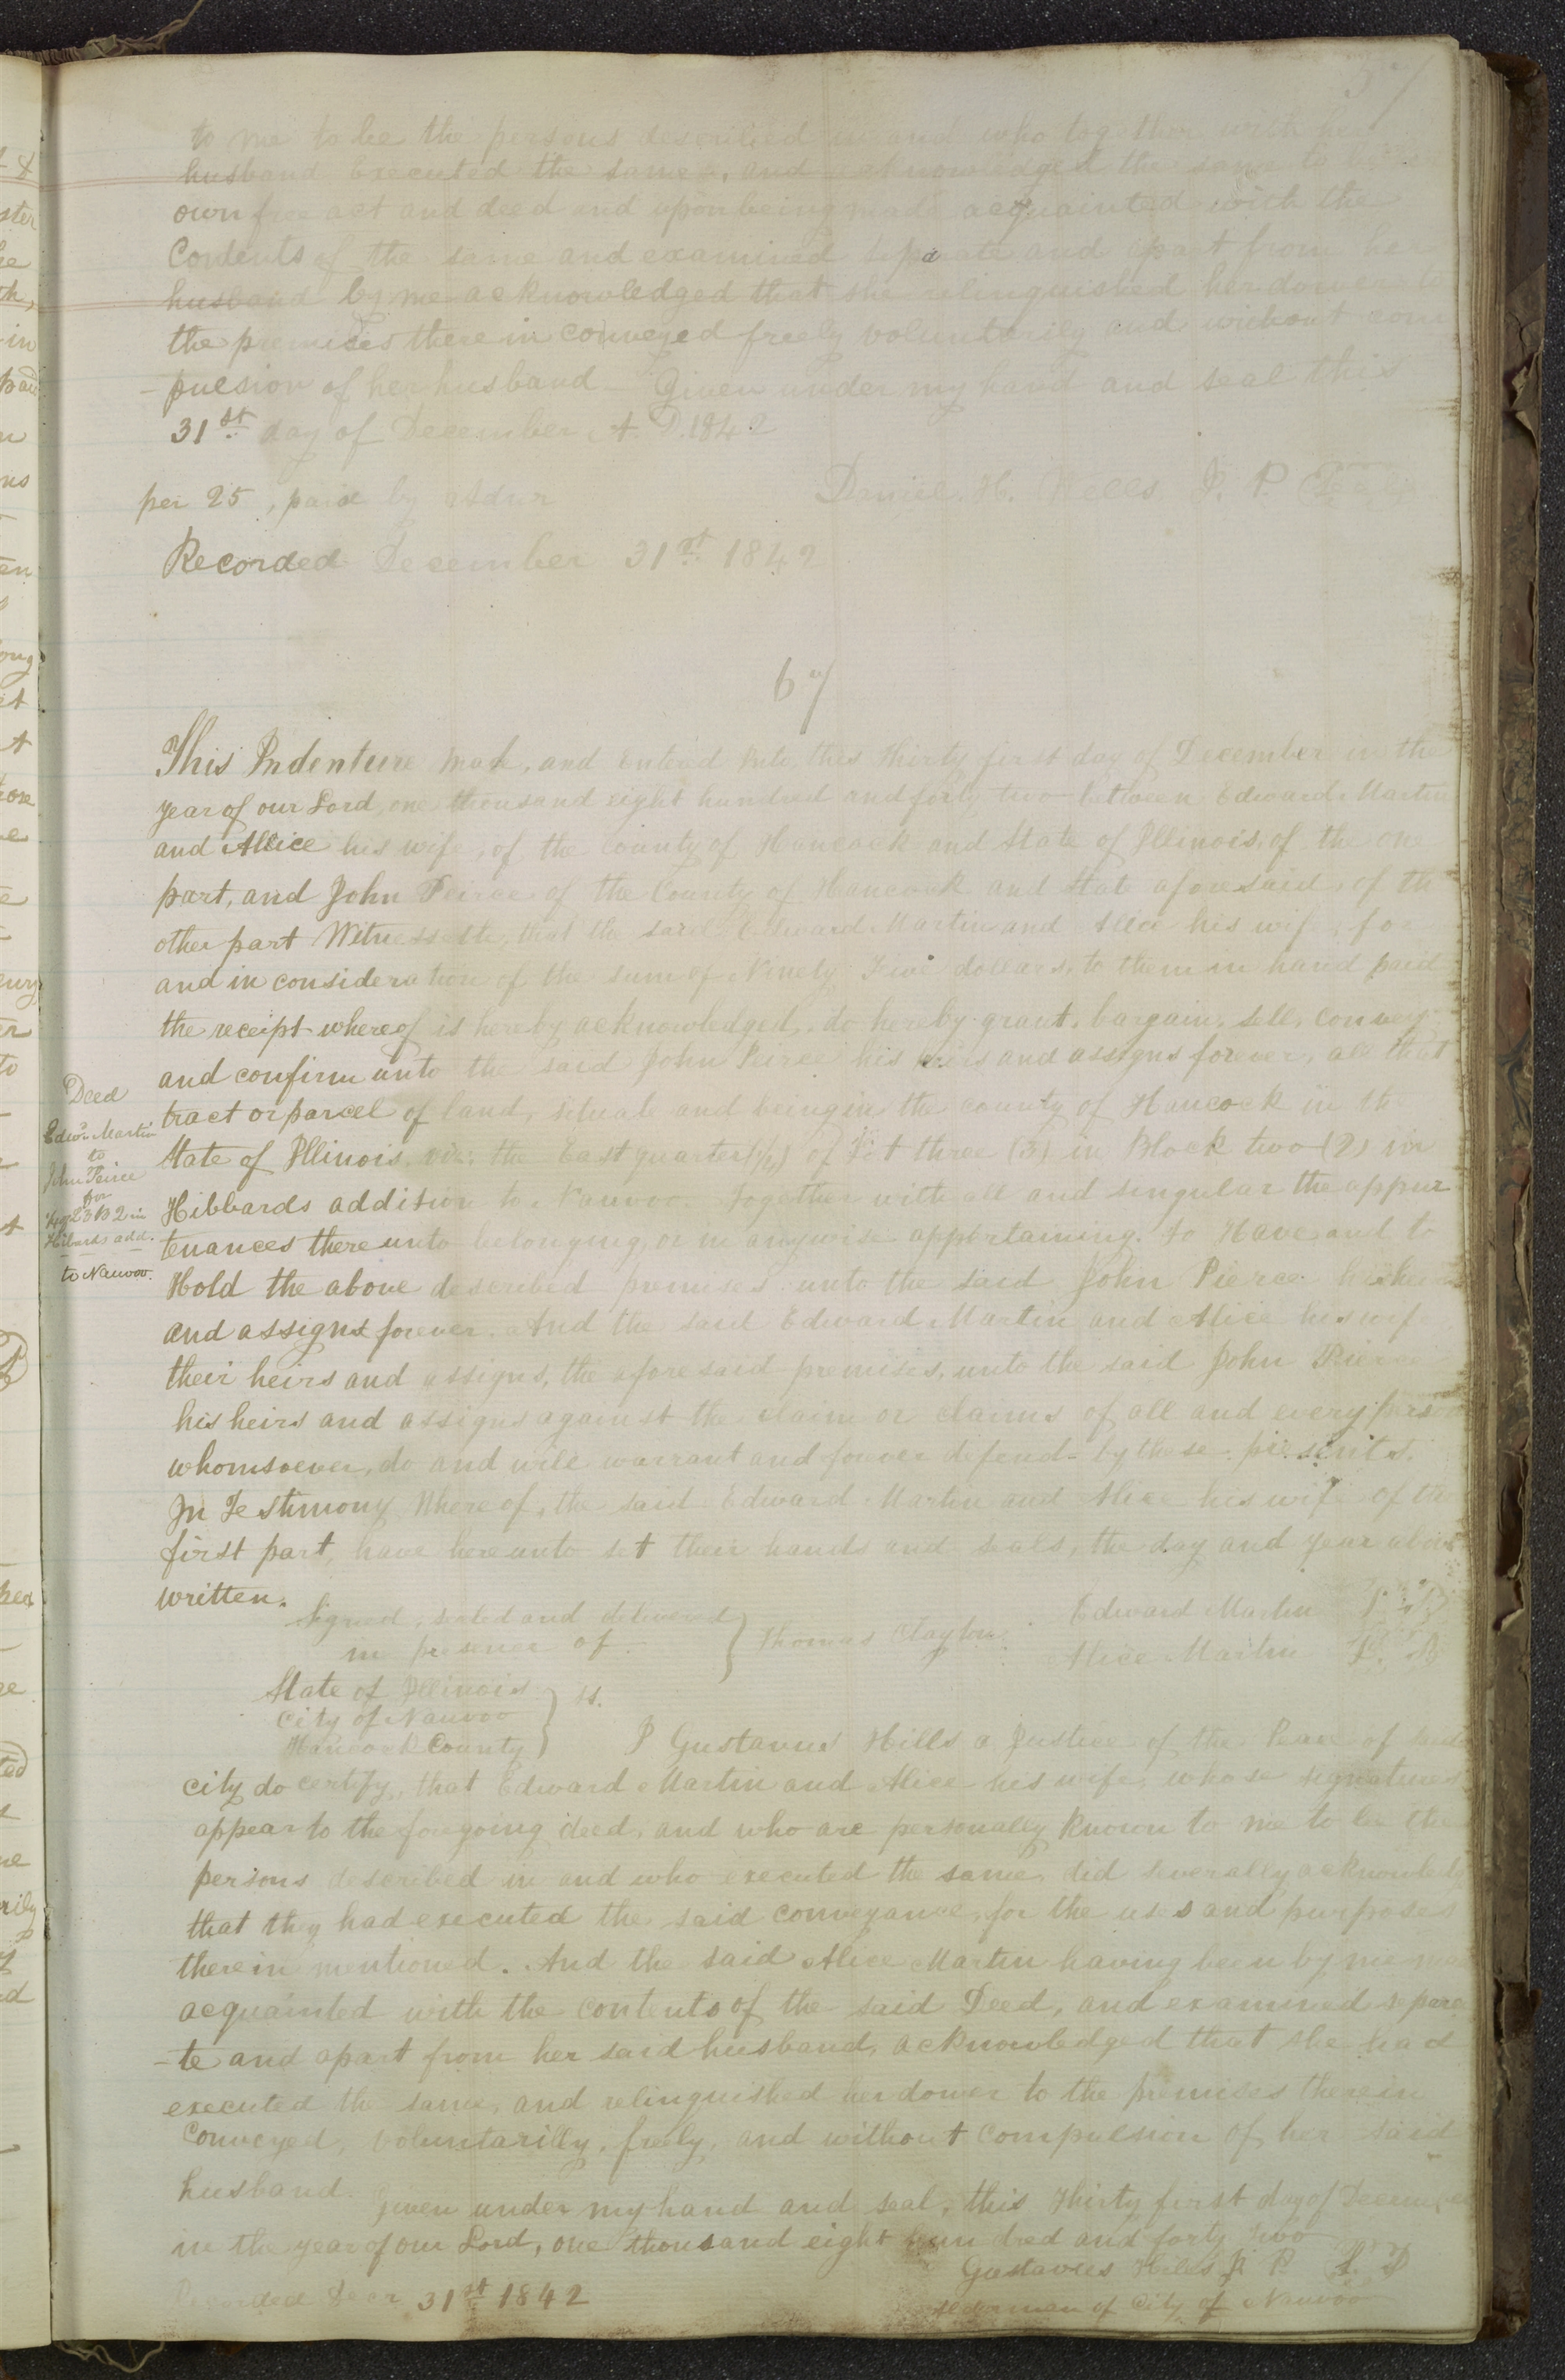 57
to me to be the persons described in and who together with her
husband Executed the same, and acknowledged the same to be her
own free act and deed and upon being made acquainted with the
Contents of the same and examined separate and apart from her
husband by me acknowledged that she relinquished her dower to
the premises there in conveyed freely voluntarily and without com
-pulsion of her husband Given under my hand and seal this
31st day of December A. D. 1842
per 25, paid by Daniel. H. Wells J. P.
Recorded December 31st 1842
67
This Indenture made, and entered into this thirty first day of December in the
year of our Lord, one thousand eight hundred and forty two between Edward Martin
and Allice his wife, of the County of Hancock and State of Illinois, of the one
part, and John Peirce of the County of Hancock and State aforesaid, of the
other part Witnesseth, that the said Edward Martin and Alice his wife, for
and in consideration of the sum of Ninety Five dollars, to them in hand paid
the receipt whereof is hereby acknowledged, do hereby grant, bargain, sell, convey
and confirm unto the said John Peirce his heirs and assigns forever, all that
tract or parcel of land, situate and being in the county of Hancock in the
State of Illinois, viz: the East quarter (1/4) of Lot three (3) in Block two (2) in
Hibbards addition to Nauvoo. Together with all and singular the appur
tenances there unto belonging, or in anywise appertaining. To Have and to
Hold the above described premises unto the said John Pierce his heirs
and assigns forever. And the said Edward Martin and Alice his wife
their heirs and assigns, the aforesaid premises, unto the said John Pierce
his heirs and assigns against the claim or claims of all and every person
whomsoever, do and will warrant and forever defend by these presents.
In Testimony Whereof, the said Edward Martin and Alice his wife of the
first part, have hereunto set their hands and seals, the day and year above
written.
Deed
Edwd Martin
to
John Peirce
for
B 2 in
Hibards add.
to Nauvoo.
Signed, sealed and delivered
in presence of } Thomas Clayton.
Edward Martin
Alice Martin
State of Illinois
City of Nauvoo } ss.
Hancock County I Gustavus Hills a Justice of the Peace of said
city do certify, that Edward Martin and Alice his wife, whose signatures
appear to the forgoing deed, and who are personally known to me to be the
persons described in and who executed the same, did severally acknowledge
that they had executed the said conveyance, for the uses and purposes
therein mentioned. And the said Alice Martin having been by me made
acquainted with the contents of the said Deed, and examined separa
-te and apart from her said husband, acknowledged that she had
executed the same, and relinquished her dower to the premises therein
Conveyed, voluntarilly, freely, and without compulsion of her said
husband. Given under my hand and seal, this thirty first day of December
in the year of our Lord, one thousand eight hundred and forty two
Gustavus Hills J. P.
Alderman of City of Nauvoo
Recorded Decr 31st 1842